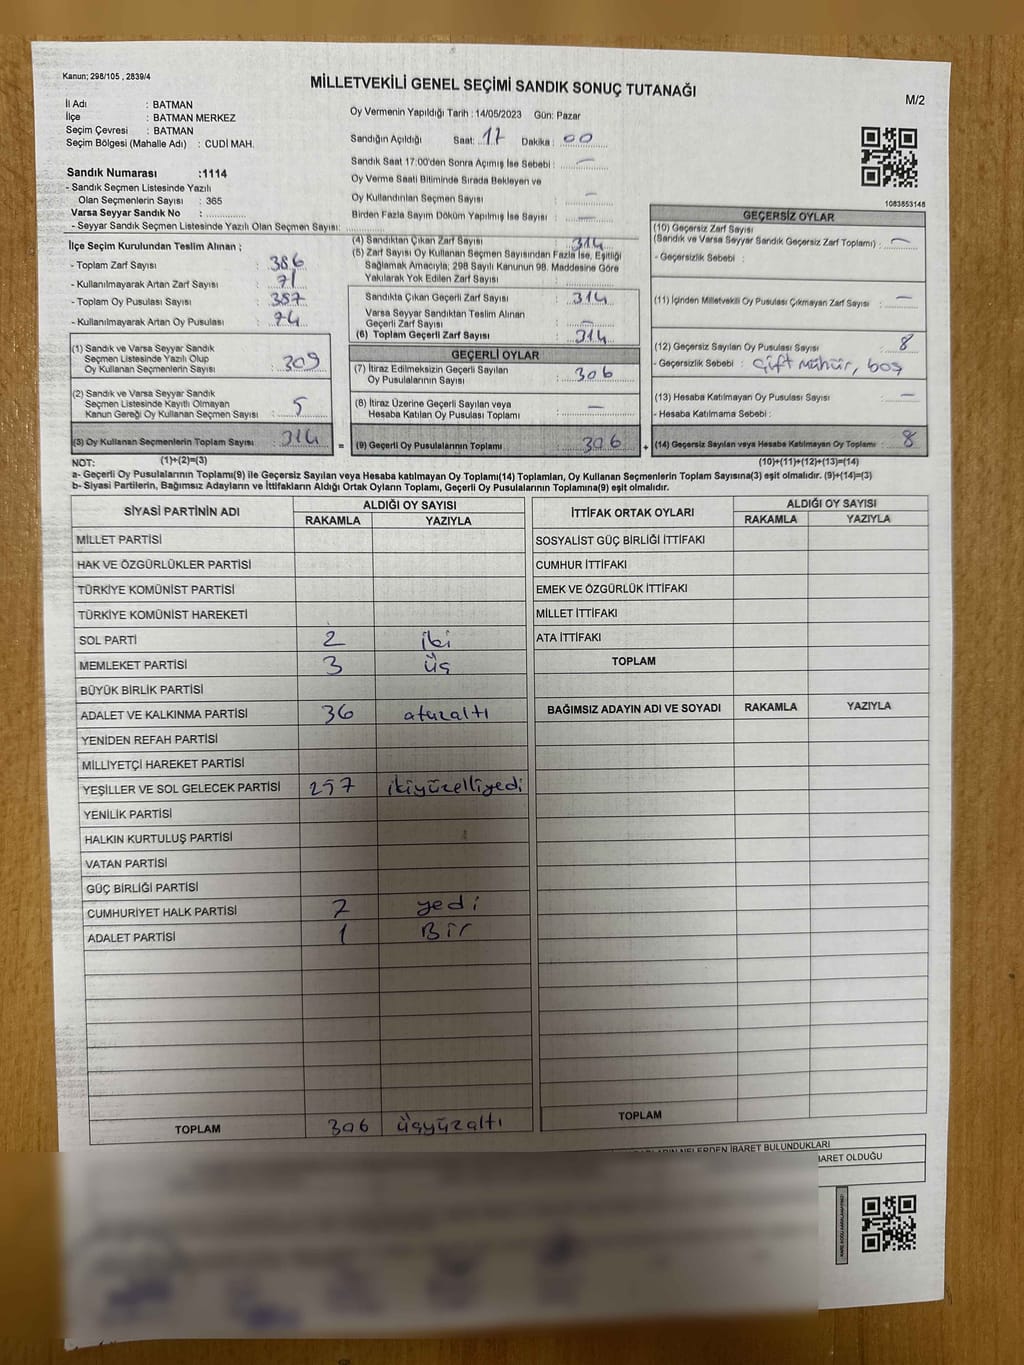 Kanun; 298/105 , 2839/4
MİLLETVEKİLİ GENEL SEÇİMİ SANDIK SONUÇ TUTANAĞI
M/2
İl Adı : BATMAN
İlçe : BATMAN MERKEZ
Seçim Çevresi : BATMAN
Seçim Bölgesi (Mahalle Adı) : CUDİ MAH.
Sandık Numarası :1114
- Sandık Seçmen Listesinde Yazılı
Olan Seçmenlerin Sayısı : 365
Varsa Seyyar Sandık No :
- Seyyar Sandık Seçmen Listesinde Yazılı Olan Seçmen Sayısı:
Oy Vermenin Yapıldığı Tarih : 14/05/2023 Gün: Pazar
Sandığın Açıldığı Saat: 17 Dakika : 00
Sandık Saat 17:00'den Sonra Açımış İse Sebebi : —
Oy Verme Saati Bitiminde Sırada Bekleyen ve
Oy Kullandırılan Seçmen Sayısı : —
Birden Fazla Sayım Döküm Yapılmış İse Sayısı : —
1083853148
İlçe Seçim Kurulundan Teslim Alınan ;
- Toplam Zarf Sayısı : 386
- Kullanılmayarak Artan Zarf Sayısı : 71
- Toplam Oy Pusulası Sayısı : 387
- Kullanılmayarak Artan Oy Pusulası : 74
(1) Sandık ve Varsa Seyyar Sandık
Seçmen Listesinde Yazılı Olup
Oy Kullanan Seçmenlerin Sayısı : 309
(2) Sandık ve Varsa Seyyar Sandık
Seçmen Listesinde Kayıtlı Olmayan
Kanun Gereği Oy Kullanan Seçmen Sayısı : 5
(3) Oy Kullanan Seçmenlerin Toplam Sayısı : 314
(1)+(2)=(3)
(4) Sandıktan Çıkan Zarf Sayısı : 314
(5) Zarf Sayısı Oy Kullanan Seçmen Sayısından Fazla İse, Eşitliği
Sağlamak Amacıyla; 298 Sayılı Kanunun 98. Maddesine Göre
Yakılarak Yok Edilen Zarf Sayısı :
Sandıkta Çıkan Geçerli Zarf Sayısı : 314
Varsa Seyyar Sandıktan Teslim Alınan
Geçerli Zarf Sayısı : —
(6) Toplam Geçerli Zarf Sayısı : 314
GEÇERLİ OYLAR
(7) İtiraz Edilmeksizin Geçerli Sayılan
Oy Pusulalarının Sayısı : 306
(8) İtiraz Üzerine Geçerli Sayılan veya
Hesaba Katılan Oy Pusulası Toplamı : —
= (9) Geçerli Oy Pusulalarının Toplamı : 306
GEÇERSİZ OYLAR
(10) Geçersiz Zarf Sayısı
(Sandık ve Varsa Seyyar Sandık Geçersiz Zarf Toplamı) : —
- Geçersizlik Sebebi :
(11) İçinden Milletvekili Oy Pusulası Çıkmayan Zarf Sayısı : —
(12) Geçersiz Sayılan Oy Pusulası Sayısı : 8
- Geçersizlik Sebebi : Çift mühür, boş
(13) Hesaba Katılmayan Oy Pusulası Sayısı : —
- Hesaba Katılmama Sebebi :
+ (14) Geçersiz Sayılan veya Hesaba Katılmayan Oy Toplamı : 8
(10)+(11)+(12)+(13)=(14)
NOT:
a- Geçerli Oy Pusulalarının Toplamı(9) ile Geçersiz Sayılan veya Hesaba katılmayan Oy Toplamı(14) Toplamları, Oy Kullanan Seçmenlerin Toplam Sayısına(3) eşit olmalıdır. (9)+(14)=(3)
b- Siyasi Partilerin, Bağımsız Adayların ve İttifakların Aldığı Ortak Oyların Toplamı, Geçerli Oy Pusulalarının Toplamına(9) eşit olmalıdır.
SİYASİ PARTİNİN ADI ALDIĞI OY SAYISI
RAKAMLA YAZIYLA
MİLLET PARTİSİ
HAK VE ÖZGÜRLÜKLER PARTİSİ
TÜRKİYE KOMÜNİST PARTİSİ
TÜRKİYE KOMÜNİST HAREKETİ
SOL PARTİ 2 iki
MEMLEKET PARTİSİ 3 üç
BÜYÜK BİRLİK PARTİSİ
ADALET VE KALKINMA PARTİSİ 36 otuzaltı
YENİDEN REFAH PARTİSİ
MİLLİYETÇİ HAREKET PARTİSİ
YEŞİLLER VE SOL GELECEK PARTİSİ 257 ikiyüzelliyedi
YENİLİK PARTİSİ
HALKIN KURTULUŞ PARTİSİ
VATAN PARTİSİ
GÜÇ BİRLİĞİ PARTİSİ
CUMHURİYET HALK PARTİSİ 7 yedi
ADALET PARTİSİ 1 Bir
TOPLAM 306 üçyüzaltı
İTTİFAK ORTAK OYLARI ALDIĞI OY SAYISI
RAKAMLA YAZIYLA
SOSYALİST GÜÇ BİRLİĞİ İTTİFAKI
CUMHUR İTTİFAKI
EMEK VE ÖZGÜRLÜK İTTİFAKI
MİLLET İTTİFAKI
ATA İTTİFAKI
TOPLAM
BAĞIMSIZ ADAYIN ADI VE SOYADI RAKAMLA YAZIYLA
TOPLAM
NELERDEN İBARET BULUNDUKLARI
İBARET OLDUĞU